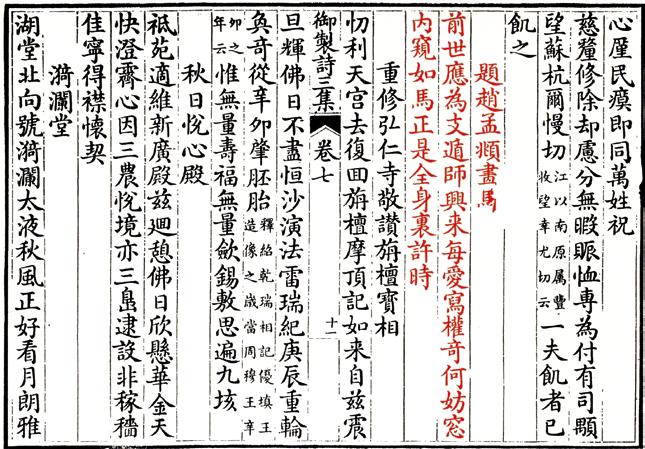 心廑民瘼即同萬姓祝
慈釐修除却慮分無暇賑恤専為付有司顒
望蘇杭爾慢切江以南原属豐收望幸尤切云一夫飢者已
飢之
題趙孟頫畫馬
前世應為支遁師興来每愛寫權竒何妨窓
内窺如馬正是全身裏許時
重修弘仁寺敬讃旃檀寳相
忉利天宫去復囬旃檀摩頂記如来自兹震
御製詩三集 卷七 十一
旦輝佛日不盡恒沙演法雷瑞紀庚辰重輪
奐竒從辛夘肇胚胎釋紹乾瑞相記優填王造像之嵗當周穆王辛夘之年云惟無量壽福無量歛錫敷思遍九垓
秋日恱心殿
祇苑適維新廣殿兹廻憩佛日欣懸華金天
快澄霽心因三農恱境亦三島逮設非稼穡
佳寧得襟懷契
漪瀾堂
湖堂北向號漪瀾太液秋風正好看月朗雅